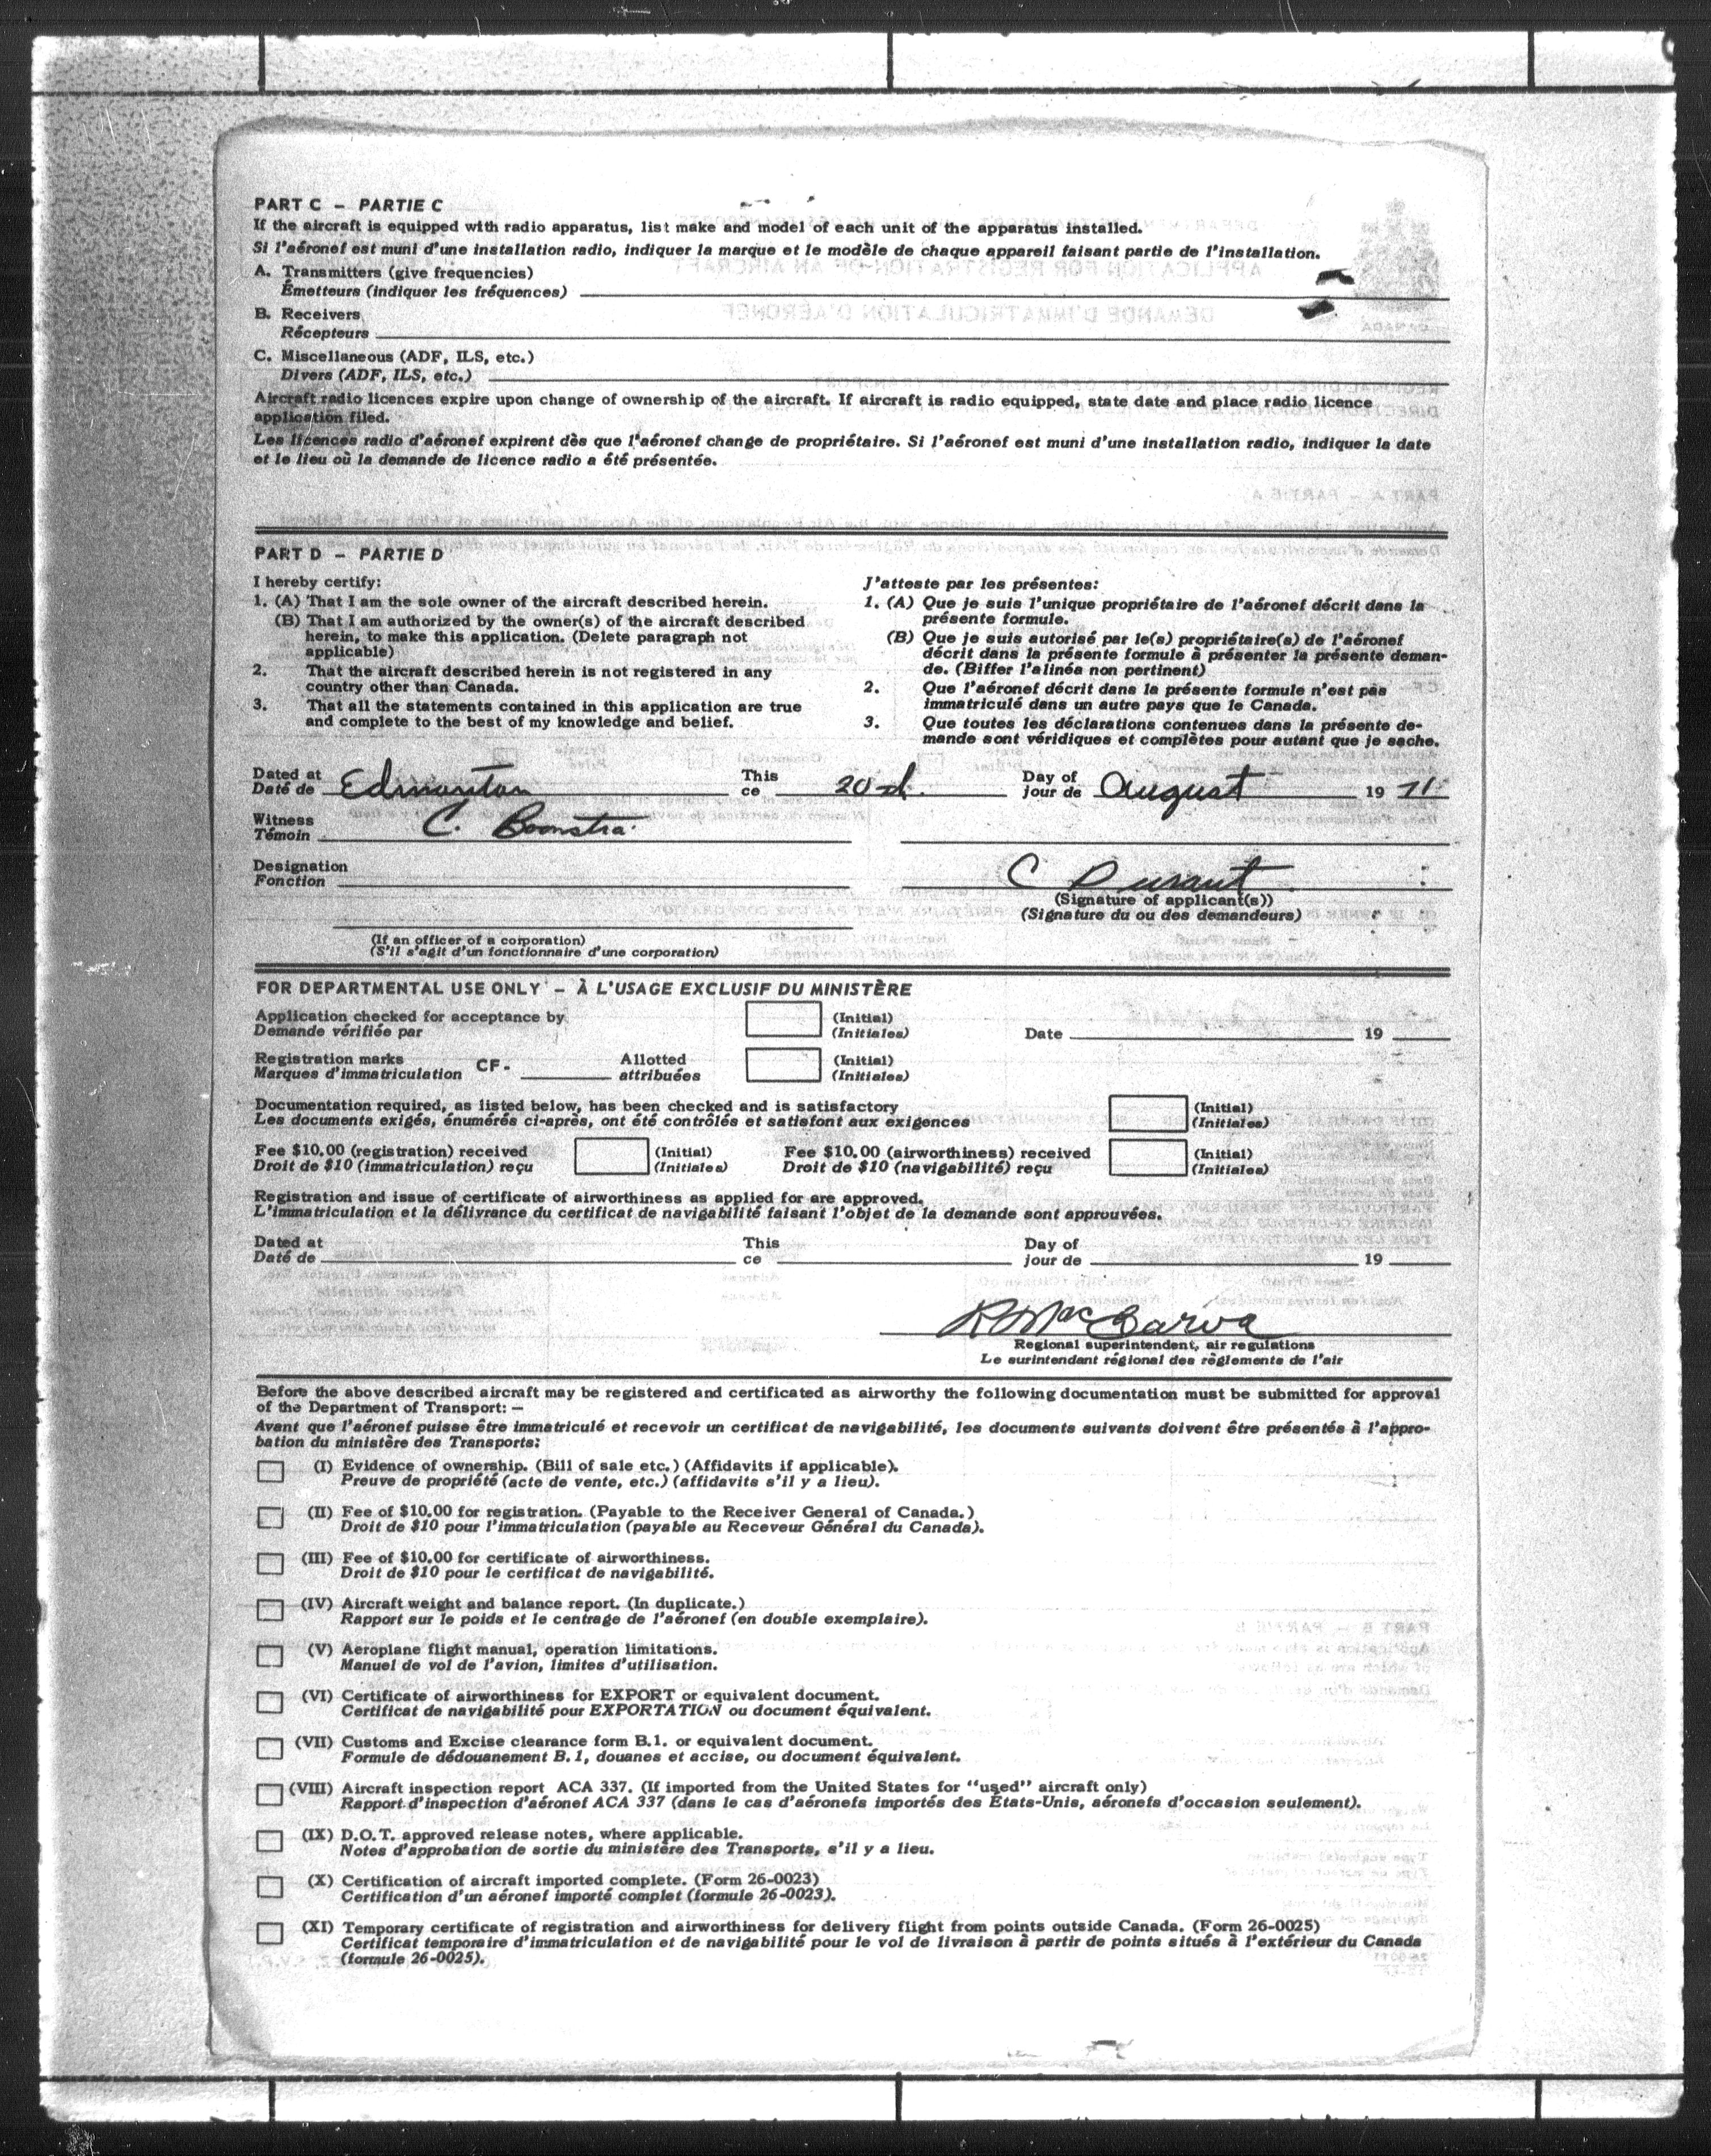 PART C – PARTIE C
If the aircraft is equipped with radio apparatus, list make and model of each unit of the apparatus installed.
Si l'aéronef est muni d'une installation radio, indiquer la marque et le modèle de chaque appareil faisant partie de l'installation.
A. Transmitters (give frequencies)
Émetteurs (indiquer les fréquences)
B. Receivers
Récepteurs
C. Miscellaneous (ADF, ILS, etc.)
Divers (ADF, ILS, etc.)
Aircraft radio licences expire upon change of ownership of the aircraft. If aircraft is radio equipped, state date and place radio licence
application filed.
Les licences radio d'aéronef expirent dès que l'aéronef change de propriétaire. Si l'aéronef est muni d'une installation radio, indiquer la date
et le lieu où la demande de licence radio a été présentée.
PART D – PARTIE D
I hereby certify:
1. (A) That I am the sole owner of the aircraft described herein.
(B) That I am authorized by the owner(s) of the aircraft described
herein, to make this application. (Delete paragraph not
applicable)
2. That the aircraft described herein is not registered in any
country other than Canada.
3. That all the statements contained in this application are true
and complete to the best of my knowledge and belief.
J'atteste par les présentes:
1. (A) Que je suis l'unique propriétaire de l'aéronef décrit dans la
présente formule.
(B) Que je suis autorisé par le(s) propriétaire(s) de l'aéronef
décrit dans la présente formule à présenter la présente deman-
de. (Biffer l'alinéa non pertinent)
2. Que l'aéronef décrit dans la présente formule n'est pas
immatriculé dans un autre pays que le Canada.
3. Que toutes les déclarations contenues dans la présente de-
mande sont véridiques et complètes pour autant que je sache.
Dated at Edmonton This 20 Day of August 19 71
Daté de ce jour de
Witness C. Boonstra
Témoin
Designation
Fonction C Durant
(Signature of applicant(s))
(Signature du ou des demandeurs)
(If an officer of a corporation)
(S'il s'agit d'un fonctionnaire d'une corporation)
FOR DEPARTMENTAL USE ONLY – À L'USAGE EXCLUSIF DU MINISTÈRE
Application checked for acceptance by (Initial)
Demande vérifiée par (Initiales) Date 19
Registration marks CF- Allotted (Initial)
Marques d'immatriculation attribuées (Initiales)
Documentation required, as listed below, has been checked and is satisfactory (Initial)
Les documents exigés, énumérés ci-après, ont été contrôlés et satisfont aux exigences (Initiales)
Fee $10.00 (registration) received (Initial) Fee $10.00 (airworthiness) received (Initial)
Droit de $10 (immatriculation) reçu (Initiales) Droit de $10 (navigabilité) reçu (Initiales)
Registration and issue of certificate of airworthiness as applied for are approved.
L'immatriculation et la délivrance du certificat de navigabilité faisant l'objet de la demande sont approuvées.
Dated at This Day of
Daté de ce jour de 19
Regional superintendent, air regulations
Le surintendant régional des règlements de l'air
Before the above described aircraft may be registered and certificated as airworthy the following documentation must be submitted for approval
of the Department of Transport: —
Avant que l'aéronef puisse être immatriculé et recevoir un certificat de navigabilité, les documents suivants doivent être présentés à l'appro-
bation du ministère des Transports:
(I) Evidence of ownership. (Bill of sale etc.) (Affidavits if applicable).
Preuve de propriété (acte de vente, etc.) (affidavits s'il y a lieu).
(II) Fee of $10.00 for registration. (Payable to the Receiver General of Canada.)
Droit de $10 pour l'immatriculation (payable au Receveur Général du Canada).
(III) Fee of $10.00 for certificate of airworthiness.
Droit de $10 pour le certificat de navigabilité.
(IV) Aircraft weight and balance report. (In duplicate.)
Rapport sur le poids et le centrage de l'aéronef (en double exemplaire).
(V) Aeroplane flight manual, operation limitations.
Manuel de vol de l'avion, limites d'utilisation.
(VI) Certificate of airworthiness for EXPORT or equivalent document.
Certificat de navigabilité pour EXPORTATION ou document équivalent.
(VII) Customs and Excise clearance form B.1. or equivalent document.
Formule de dédouanement B.1, douanes et accise, ou document équivalent.
(VIII) Aircraft inspection report ACA 337. (If imported from the United States for "used" aircraft only)
Rapport d'inspection d'aéronef ACA 337 (dans le cas d'aéronefs importés des États-Unis, aéronefs d'occasion seulement).
(IX) D.O.T. approved release notes, where applicable.
Notes d'approbation de sortie du ministère des Transports, s'il y a lieu.
(X) Certification of aircraft imported complete. (Form 26-0023)
Certification d'un aéronef importé complet (formule 26-0023).
(XI) Temporary certificate of registration and airworthiness for delivery flight from points outside Canada. (Form 26-0025)
Certificat temporaire d'immatriculation et de navigabilité pour le vol de livraison à partir de points situés à l'extérieur du Canada
(formule 26-0025).